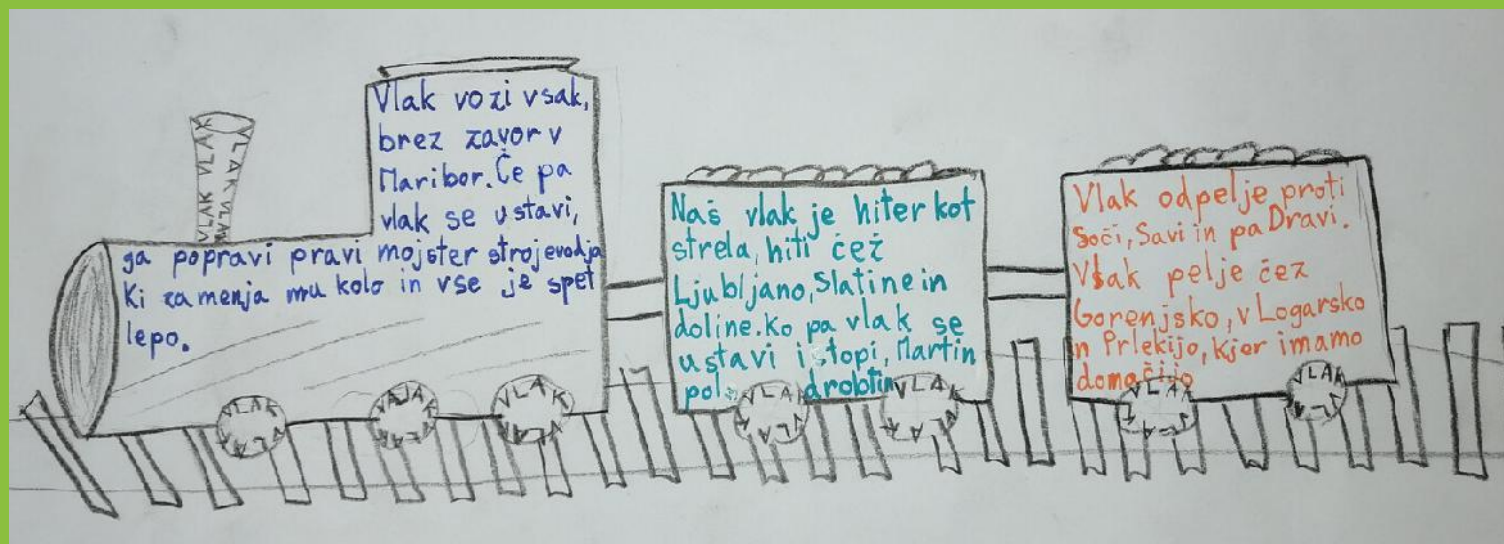 VLAK VLAK
VLAK VLAK
Vlak vozi vsak,
brez zavor v
Maribor. Če pa
vlak se ustavi,
ga popravi pravi mojster strojevodja
Ki zamenja mu kolo in vse je spet
lepo.
Naš vlak je hiter kot
strela, hiti čež
Ljubljano, Slatine in
doline. Ko pa vlak se
ustavi i stopi, Martin
drobtin
Vlak odpelje proti
Soči, Savi in pa Dravi.
Však pelje čez
Gorenjsko, v Logarsko
n Prlekijo, kjer imamo
domačijo
VLAK
VLAK
VLAK
VLAK
VLAK
VLAK